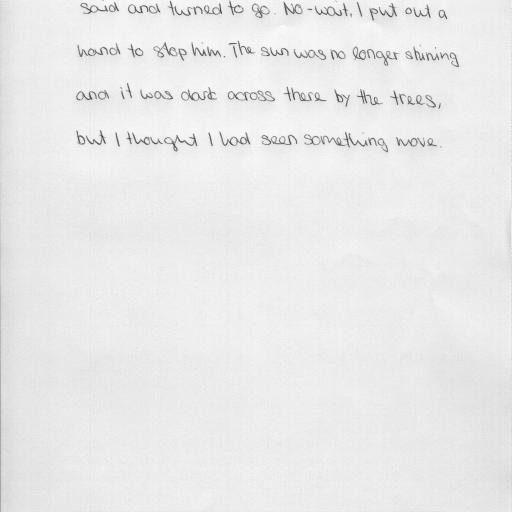 said and turned to go. No-wait, I put out a
hand to stop him. The sun was no longer shining
and it was dark across there by the trees,
but I thought I had seen something move.